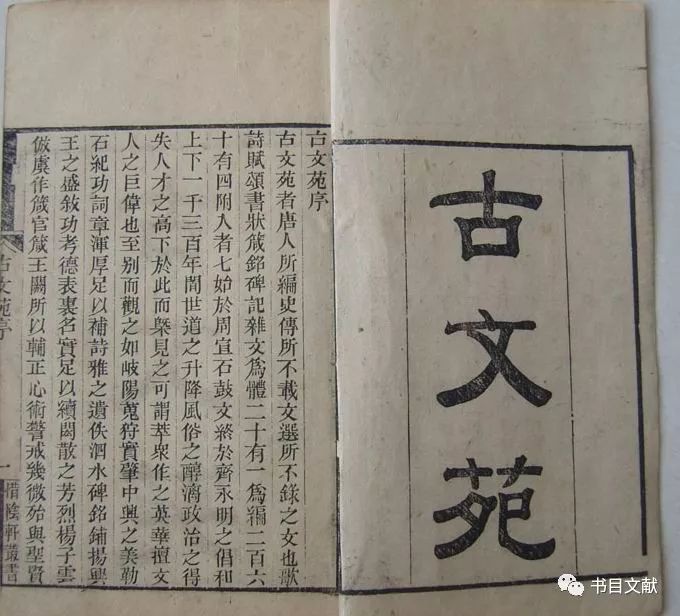 古文苑
古文苑序
古文苑者唐人所編史傳所不載文選所不錄之文也歌
詩賦頌書狀箴銘碑記雜文為體二十有一為編二百六
十有四附入者七始於周宣石鼓文終於齊永明之倡和
上下一千三百年間世道之升降風俗之醇漓政治之得
失人才之高下於此而槩見之可謂萃衆作之英華擅文
人之巨偉也至别而觀之如岐陽蒐狩實肇中興之美勒
石紀功詞章渾厚足以補詩雅之遺佚泗水碑銘鋪揚興
王之盛敘功考德表裏名實足以續閎散之芳烈楊子雲
倣虞作箴官箴王闕所以輔正心術警戒幾微殆與聖賢
古文苑序
一
惜陰軒叢書
书目文献